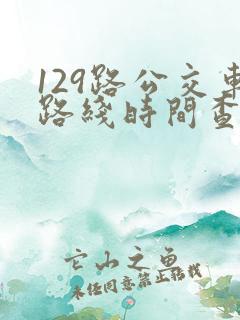 129路公交車
路綫時間查
它山之魚
未經同意禁止搭載